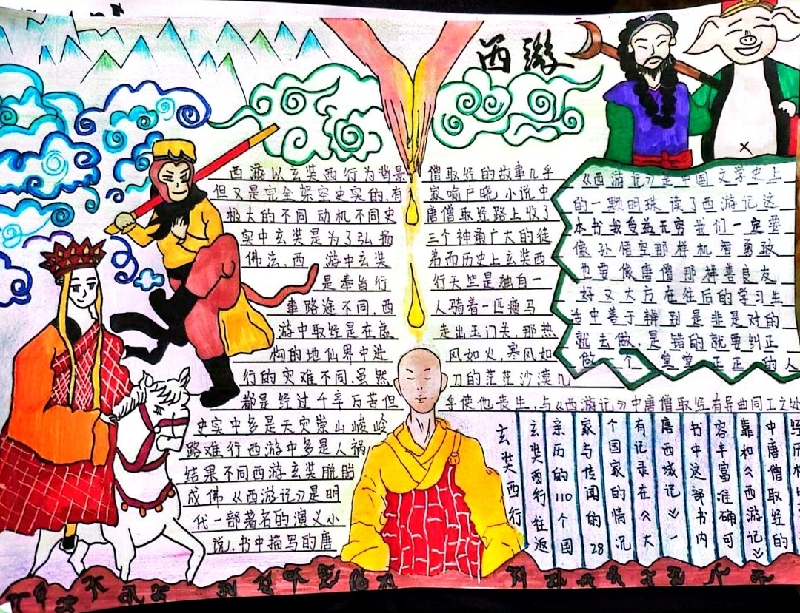 西游
西游以玄奘西行为背景
但又是完全架空史实的,有
极大的不同动机不同史
实中玄奘是为了弘扬
佛法,西游中玄奘
是奉旨行
事路途不同,西
游中取经是在虚
构的地仙界中进
行的灾难不同,虽然
都是经过千辛万苦但
史实中多是天灾崇山峻岭
路难行西游中多是人祸
结果不同西游玄奘脱胎
成佛《西游记》是明
代一部著名的演义小
说,书中描写的唐
僧取经的故事几乎
家喻户晓,小说中
唐僧取经路上收了
三个神通广大的徒
弟而历史上玄奘西
行天竺是独自一
人骑着一匹瘦马
走出玉门关,那热
风如火,寒风如
刀的茫茫沙漠几
乎使他丧生,与《西游记》中唐僧取经有异曲同工之处
《西游记》是中国文学史上
的一颗明珠,读了西游记这
本书我受益无穷我们一定要
像孙悟空那样机智勇敢
也要像唐僧那样善良友
好又大方在往后的学习生
活中善于辨别是非是对的
就去做,是错的就要纠正
做一个堂堂正正的人
玄奘西行
玄奘西行往返
亲历的110个国
家与传闻的28
个国家的情况
有记录在《大
唐西域记》一
书中这部书内
容丰富准确可
靠和《西游记》
中唐僧取经的